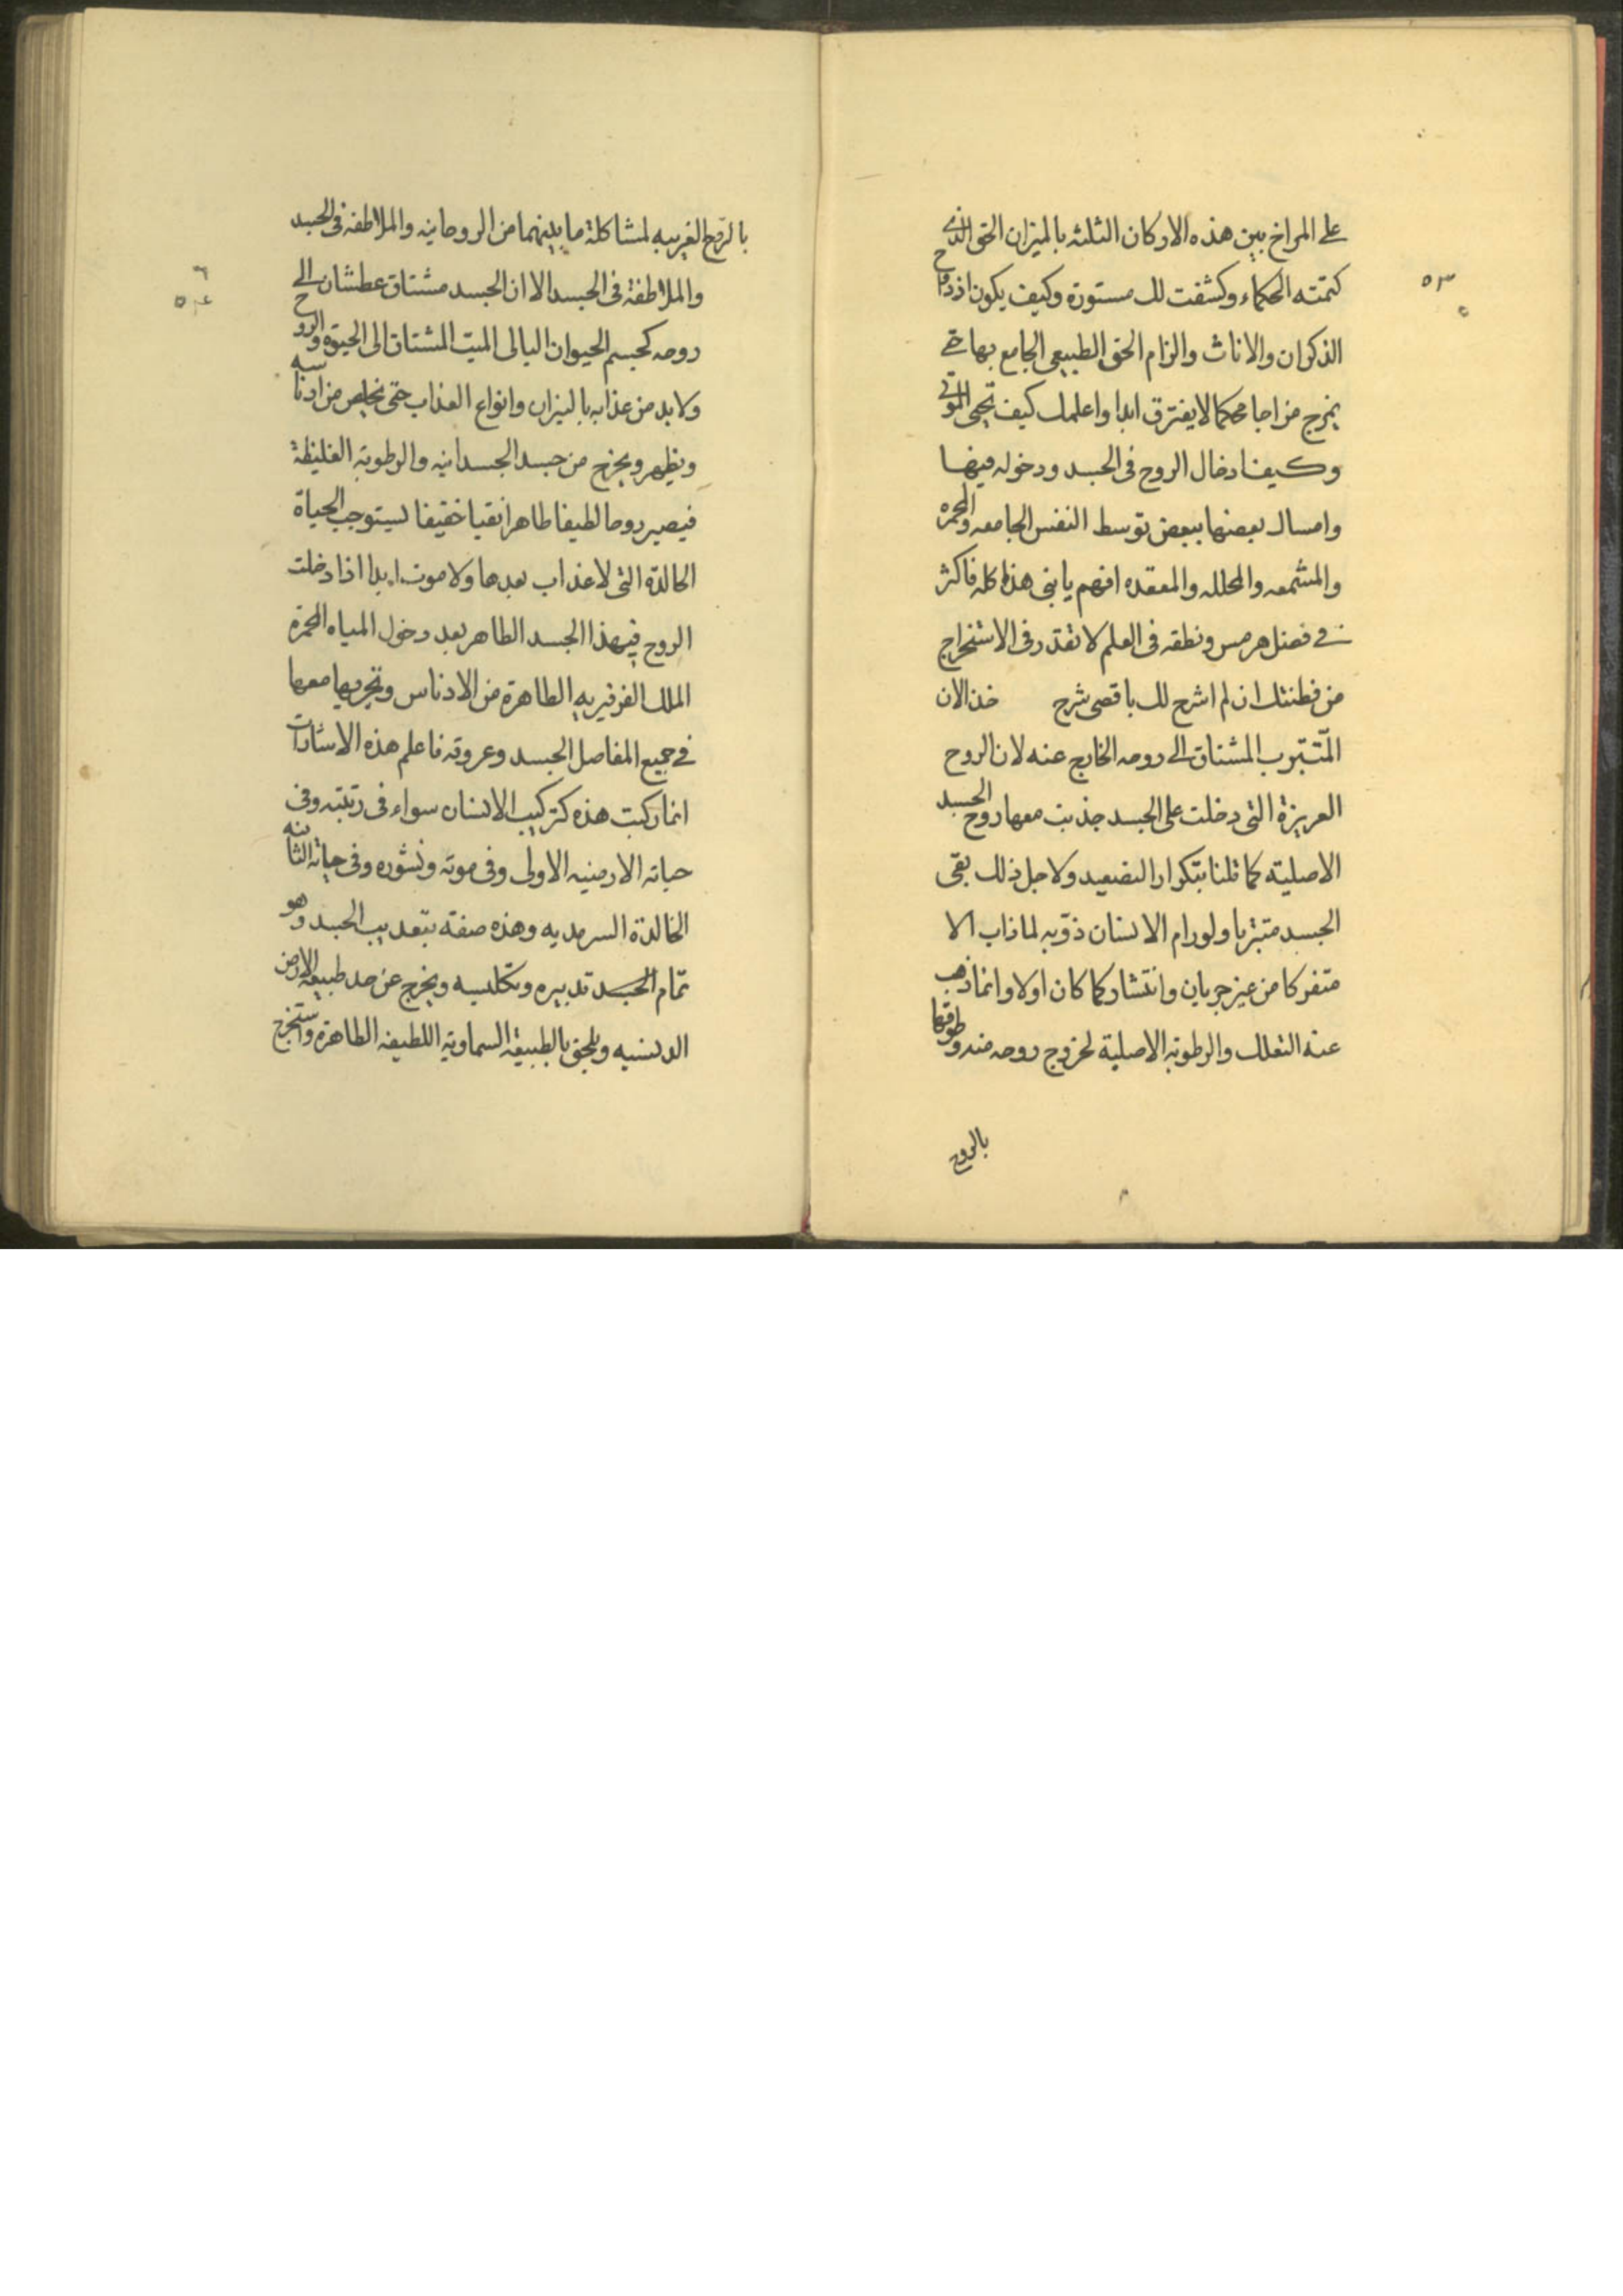 ٥٣
على المزاج بين هذه الاركان الثلثه بالميزان الحق الذى
كتمته الحكماء وكشفت لك مستوره وكيف يكون ازدواج
الذكران والاناث والزام الحق الطبيعى الجامع بها حتى
يمزج مزاجا محكما لا يفترق ابدا واعلمك كيف تحيى الموتى
وكيف ادخال الروح فى الجسد ودخوله فيها
وامساك بعضها ببعض بتوسط النفس الجامعه والمحمره
والمشمعه والمحلله والمعقده افهم يا بنى هذا كله فاكثر
فى فضل هرمس ونطقه فى العلم لا تقدر فى الاستخراج
من فطنتك ان لم اشرح لك باقصى شرح خذ الان
المتترب المشتاق الى روحه الخارج عنه لان الروح
الغريزة التى دخلت على الجسد جذبت معها روح الجسد
الاصليته كما قلنا بتكرار التصعيد ولاجل ذلك بقى
الجسد متتربا ولو رام الانسان ذوبه لما ذاب الا
متفركا من غير جريان وانتشار كما كان اولا وانما ذهب
عنه التعلك والرطوبة الاصلية لخروج روحه منه
بالروح
٦
٥٤
بالروح الغريبه لمشاكلة ما بينهما من الروحانيه والملاطفه فى الجسد
والملاطفة فى الجسد الا ان الجسد مشتاق عطشان الى
روحه كجسم الحيوان البالى الميت المشتاق الى الحيوة والروح
ولا بد من عذابه بالنيران وانواع العذاب حتى تخلص من ادناسه
ويظهر ويخرج من جسد الجسدانيه والرطوبة الغليظة
فيصير روحا لطيفا طاهرا نقيا خفيفا ليستوجب الحياة
الخالدة التى لا عذاب بعدها ولا موت ابدا اذا دخلت
الروح فيهذا الجسد الطاهر بعد دخول المياه المحمرة
الملك الفرفيريه الطاهرة من الادناس وتجريها معها
فى جميع المفاصل الجسد وعروقه فاعلم هذه الاشارات
انما ركبت هذه كتركيب الانسان سواء فى رتبته وفى
حياته الارضيه الاولى وفى موته ونشوره وفى حياته الثانيه
الخالدة السرمديه وهذه صفة بتعديب الجسد وهو
تمام الجسد تدبيره وتكليسه ويخرج عن حد طبيعة الارض
الدنسيه ويلحق بالطبيعة السماوية اللطيفه الطاهره واستخرج